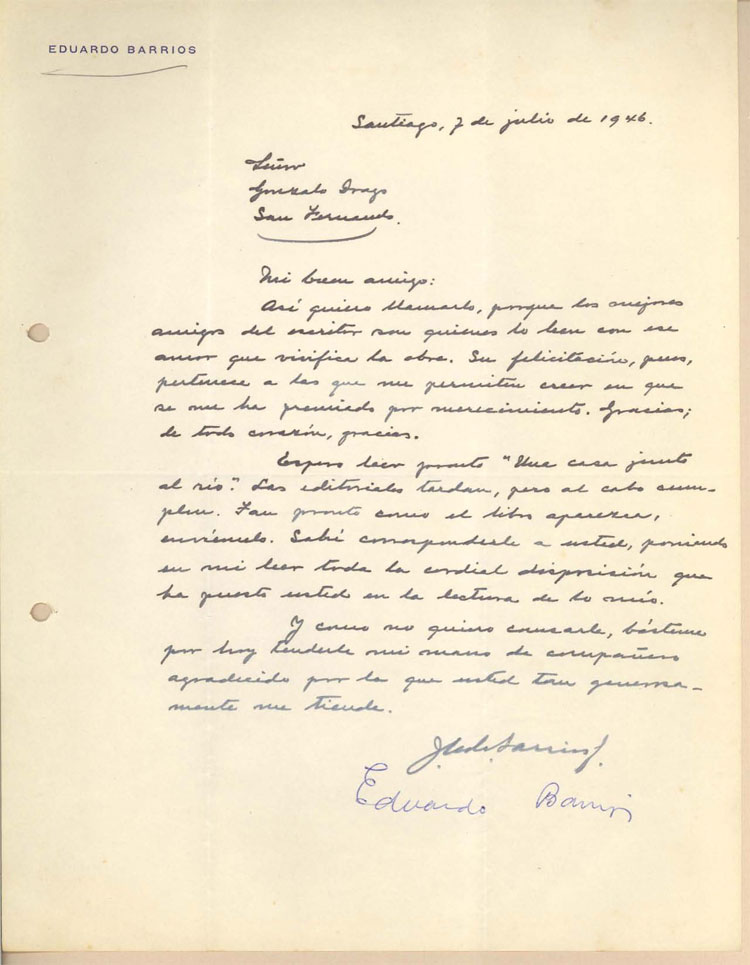 EDUARDO BARRIOS
Santiago, 7 de julio de 1946.
Señor
Gonzalo Drago
San Fernando.
Mi buen amigo:
Así quiero llamarlo, porque los mejores
amigos del escritor son quienes lo leen con ese
amor que vivifica la obra. Su felicitación, pues,
pertenece a las que me permiten creer en que
se me ha premiado por merecimiento. Gracias;
de todo corazón, gracias.
Espero leer pronto "Una casa junto
al río". Las editoriales tardan, pero al cabo cum-
plen. Tan pronto como el libro aparezca,
envíemelo. Sabré corresponderle a usted, poniendo
en mi leer toda la cordial disposición que
ha puesto usted en la lectura de lo mío.
Y como no quiero cansarle, básteme
por hoy tenderle mi mano de compañero
agradecido por la que usted tan generosa-
mente me tiende.
Eduardo Barrios